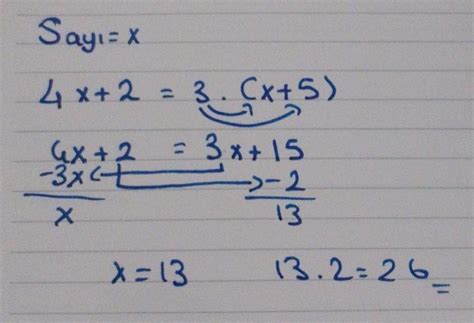 Sayı = x
4x+2 = 3.(x+5)
4x+2 = 3x+15
-3x -2
x 13
x = 13 13.2 = 26